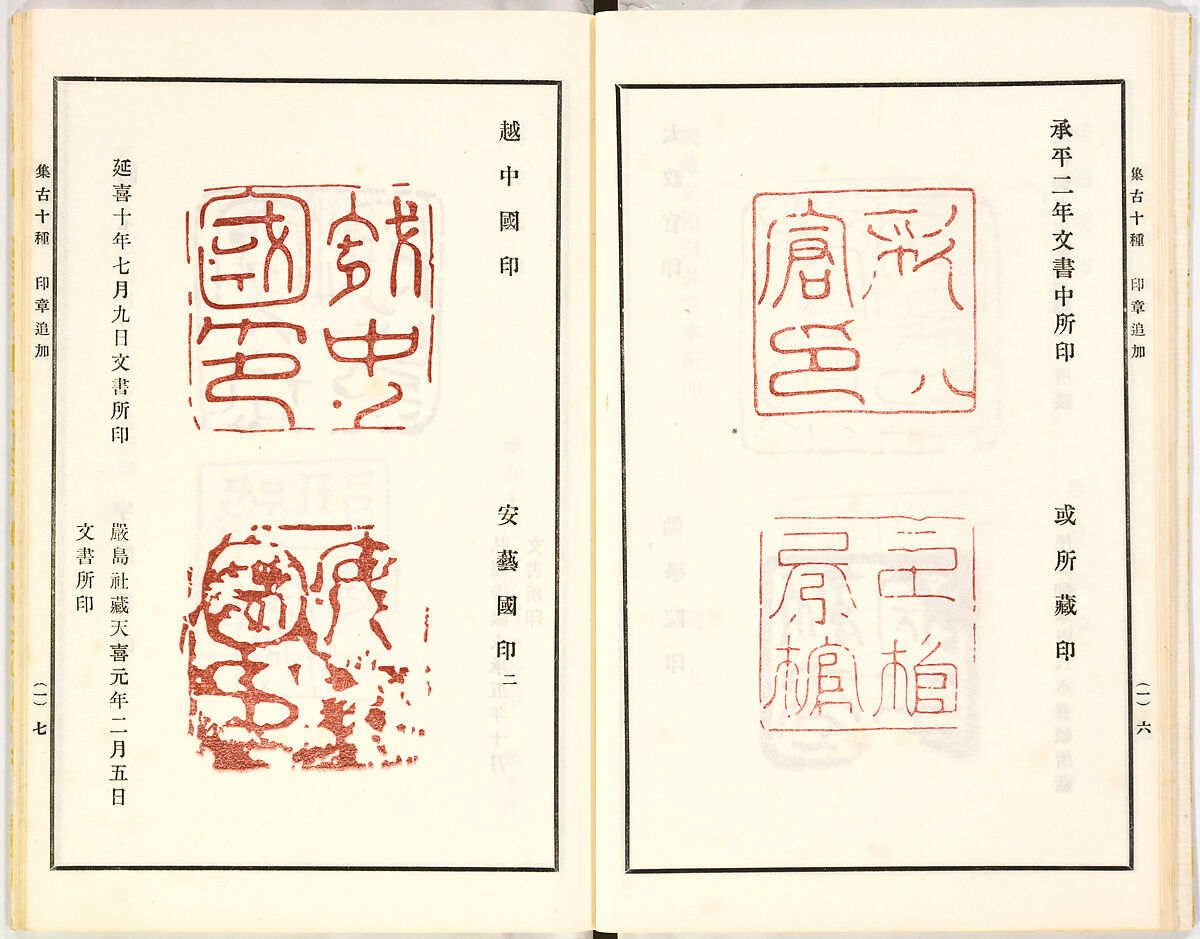 集古十種 印章追加
承平二年文書中所印
或所藏印
(一)六
越中國印
越中國印
安藝國印二
延喜十年七月九日文書所印
嚴島社藏天喜元年二月五日
文書所印
集古十種 印章追加
(一)七